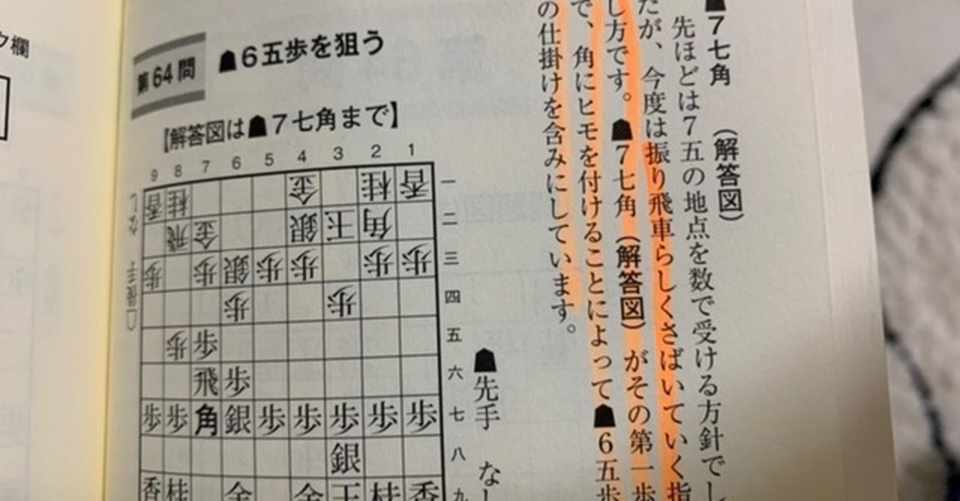 ☗7七角　（解答図）
先ほどは7五の地点を数で受ける方針でし
たが、今度は振り飛車らしくさばいていく指
し方です。☗7七角（解答図）がその第一歩
で、角にヒモを付けることによって☗6五歩
の仕掛けを含みにしています。
第64問
☗6五歩を狙う
【解答図は☗7七角まで】
9 8 7 6 5 4 3 2 1
香 桂 金 桂 香 一
飛 金 銀 王 角 二
歩 歩 銀 歩 歩 歩 歩 三
歩 歩 四
歩 歩 五
飛 歩 六
歩 歩 角 銀 歩 歩 歩 歩 歩 七
銀 八
香 桂 金 金 王 桂 香 九
☗先手 な
☖後手 なし
ク欄